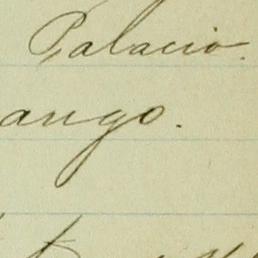 Palacio.
ango.